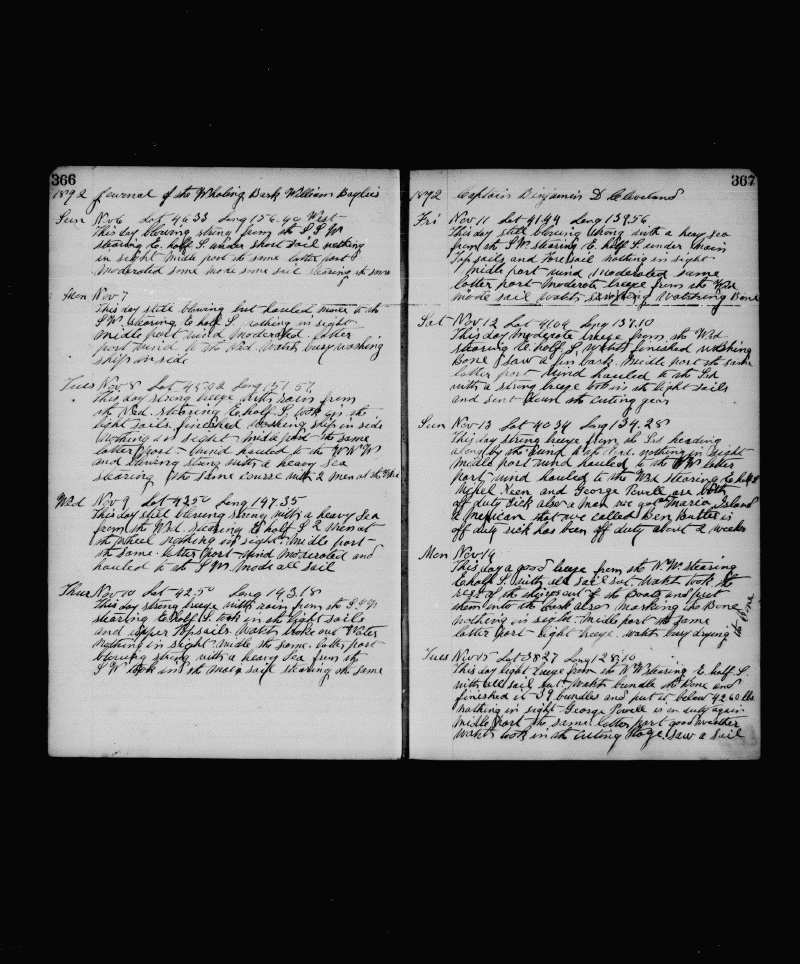 366
1892 Journal of the Whaling Bark William Baylies
Sun Nov 6 Lat 46 33 Long 156.40 West
This day blowing strong from the S S W
stearing E. half S. under short sail nothing
in sight midle part the same latter part
moderated some made some sail stearing the same
Mon Nov 7
This day still blowing but hauled more to the
S W. stearing E. half S. nothing in sight
midle part wind moderated. latter
part wind to the Wrd. watch busy washing
ship in side
Tues Nov. 8 Lat 45 Long. 151 57
This day strong breeze with rain from
the Wrd. stearing E. half S. took in the
light sails. finished washing ship in side
nothing in sight. midle part the same
latter part wind hauled to the W N W
and blowing strong with a heavy sea
stearing the same course with 2 men at the Wheel
Wed Nov 9 Lat 42 50 Long 147.35
This day still blowing strong with a heavy Sea
from the Wrd. stearing E half S 2 men at
the wheel nothing in sight. midle part
the same. latter part wind moderated and
hauled to the S W. made all sail
Thurs Nov 10 Lat 42.50 Long 143.18
This day strong breeze with rain from the
stearing E half S. took in the light sails
and upper topsails. watch broke out water
nothing in sight. midle the same. latter part
blowing strong with a heavy Sea from the
S W took in the main sail stearing the same
367
1892 Captain Benjamin D Cleveland
Fri Nov 11 Lat 41.44 Long 139.56
This day still blowing strong with a heavy sea
from the S W. stearing E. half S. under main
Topsails and Foresail nothing in sight.
midle part wind moderated some
latter part moderate breeze from the Wrd
made sail watch watching Bone
Sat Nov 12 Lat 41.04 Long 137.10
This day moderate breeze from the Wrd
stearing E. half S. watch finished washing
bone saw a fin back. midle part the same
latter part wind hauled to the Srd
with a strong breeze took in the light sails
and sent down the cuting gear
Sun Nov 13 Lat 40 34 Long 134.28
This day strong breeze from the Srd heading
along by the wind nothing in sight
midle part wind hauled to the W latter
part wind hauled to the Wrd stearing E half S
Michel Keen and George Powell are both
off duty sick also a man we got Maria Island
a Mexican that we called Ben Butler is
off duty sick has been off duty about 2 weeks
Mon Nov 14
This day a good breeze from the N W. stearing
E half S. with all sail set watch took the
rest of the out of the Boats and put
them into the also marking the Bone
nothing in sight. midle part the same
latter part light breeze. watch busy drying the Bone
Tues Nov 15 Lat 38 27 Long 128.10
This day light breeze from the N W stearing E. half S.
with all sail set watch bundle the Bone and
finished it 59 bundles and put it below 4260 lbs
nothing in sight George Powell is on duty again
midle part the same. latter part good weather
watch took in the cutting stage. Saw a Sail